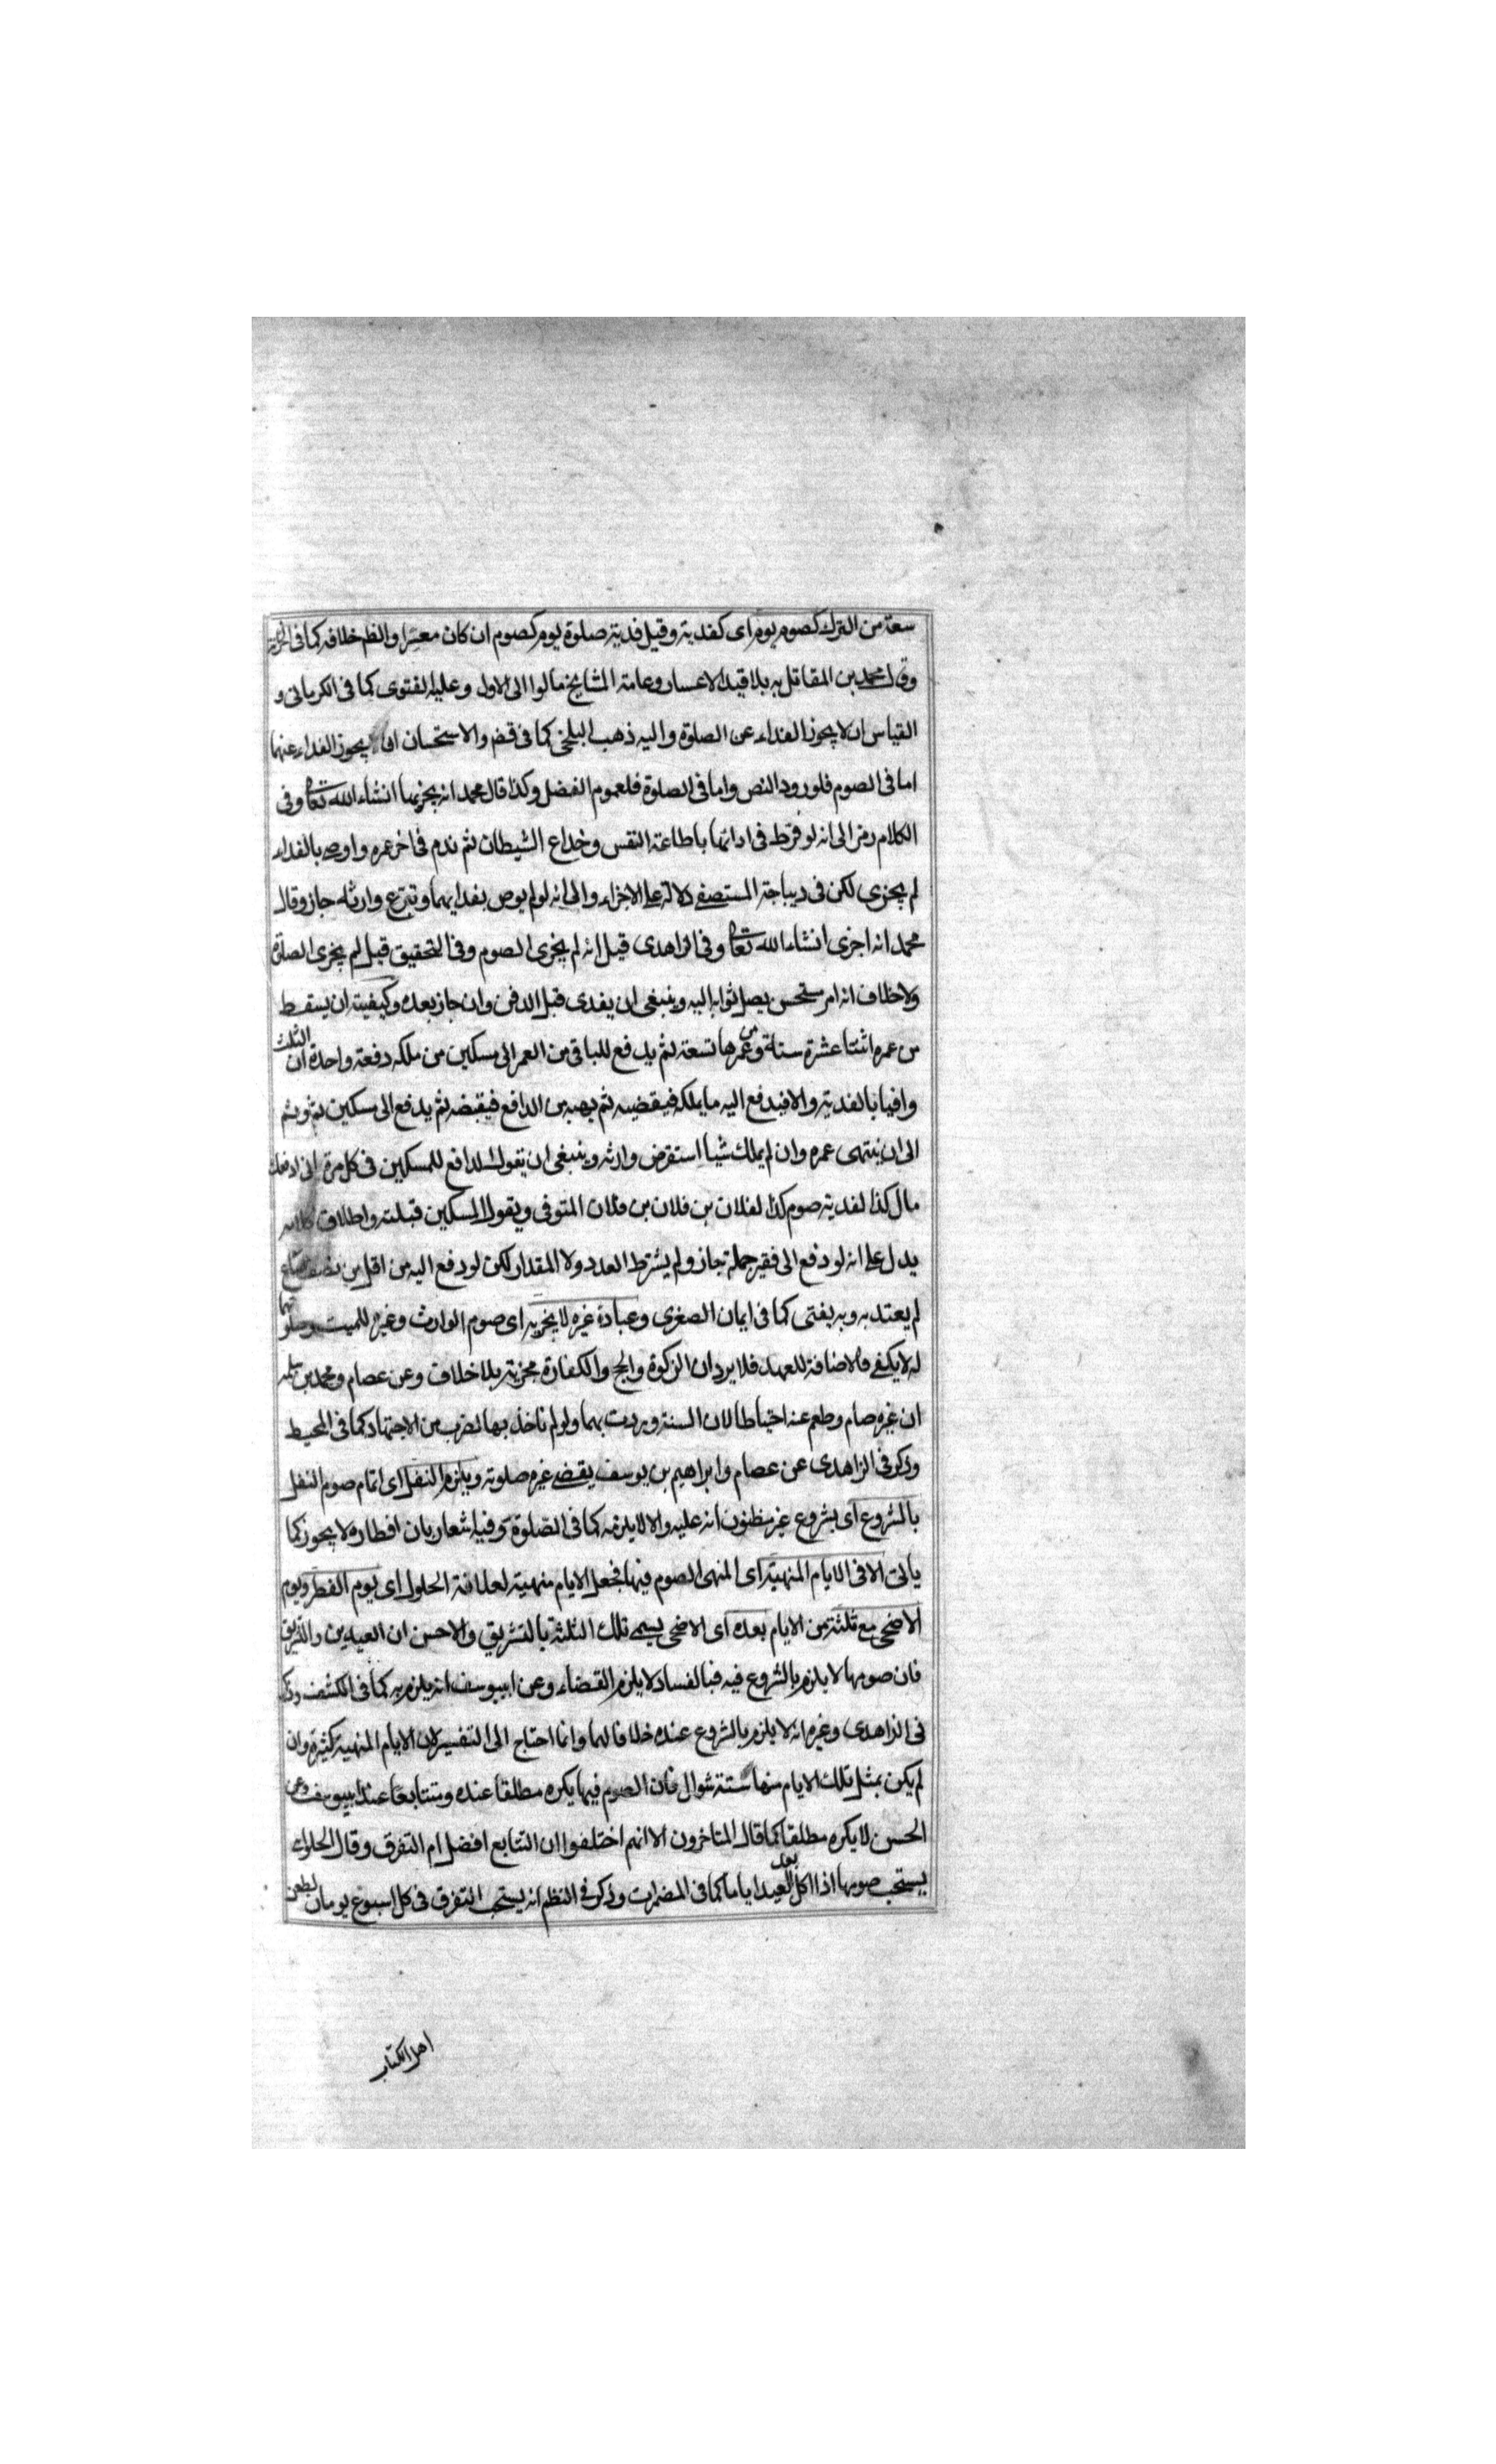 سعة من الترك كصوم يوم اى كفديته وقيل فدية صلوة يوم كصوم ان كان معسرا والظم خلافه كما فى
وقال محمد بن المقاتل به بلا قيد الاعسار وعامة المشايخ مالوا الى الاول وعليه الفتوى كما فى الكرمانى و
القياس ان لا يجوز الفداء عن الصلوة واليه ذهب البلخى كما فى قضم والاستحسان ان يجوز الفداء عنهما
اما فى الصوم فلورود النص واما فى الصلوة فلعموم الفضل وكذا قال محمد انه يجزيها انشاء الله تعالى وفى
الكلام رمز الى انه لو فرط فى ادائها باطاعة النفس وخداع الشيطان ثم ندم فى اخر عمره واوصى بالفداء
لم يجزى لكن فى ديباجة المستصفى دلالة على الاجزاء والى انه لو لم يوص بفدايهما وتبرع وارثه جاز وقال
محمد انه اجزى انشاء الله تعالى وفى الزاهدى قيل انه لم يجزى الصوم وفى التحقيق قيل لم يجزى الصلوة
ولا خلاف انه امر مستحسن يصل ثوابه اليه وينبغى ان يفدى قبل الدفن وان جاز بعده وكيفيته ان يسقط
من عمره اثنتا عشرة سنة ومن عمرها تسعة ثم يدفع للباقى من العمر الى مسكين من ملكه دفعة واحدة ان الثلث
وافيا بالفدية والا فيدفع اليه ما يملكه فيقضيه ثم يهبه من الدافع فيقبضه ثم يدفع الى مسكين ثم وثم
الى ان ينتهى عمره وان لم يملك شيا استقرض وارثه وينبغى ان يقول الدافع للمسكين فى كل مرة انى ادفعك
مال كذا لفدية صوم كذا لفلان بن فلان بن فلان المتوفى ويقول المسكين قبلته واطلاق كلامه
يدل على انه لو دفع الى فقير جملة جاز ولم يشترط العدد ولا المقدار لكن لو دفع اليه من اقل من نصف صاع
لم يعتد به وبه يفتى كما فى ايمان الصغرى وعبادة غيره لا يجزيه اى صوم الوارث وغيره للميت وصلوتهما
له لا يكفى فالاضافة للعهد فلا يرد ان الزكوة والحج والكفارة مجزية بلا خلاف وعن عصام ومحمد بن سلمه
ان غيره صام وطعم عنه احتياطا لان السنة وردت بهما ولو لم ناخذ بها لضرب من الاجتهاد كما فى المحيط
وذكر فى الزاهدى عن عصام وابراهيم بن يوسف يقضى غيره صلوته ويلزم النفل اى اتمام صوم النفل
بالشروع اى بشروع غير مظنون انه عليه والا لا يلزمه كما فى الصلوة وفيه اشعار بان افطاره لا يجوز كما
ياتى الا فى الايام المنهية اى المنهى الصوم فيها فجعل الايام منهية لعلاقة الحلول اى يوم الفطر ويوم
الاضحى مع ثلثة من الايام بعده اى الاضحى يسمى تلك الثلثة بالتشريق والاحسن ان العيدين والتشريق
فان صومها لا يلزم بالشروع فيه فبالفساد لا يلزم القضاء وعن ابيوسف انه يلزم به كما فى الكشف وذكر
فى الزاهدى وغيره انه لا يلزم بالشروع عنده خلافا لهما وانما احتاج الى التفسير لان الايام المنهية كثيرة وان
لم يكن بمثل تلك الايام منها ستة شوال فان الصوم فيها يكره مطلقا عنده ومتتابعا عند ابيوسف وعن
الحسن لا يكره مطلقا كما قال المتاخرون الا انهم اختلفوا ان التتابع افضل ام التفرق وقال الحلوانى
يستحب صومها اذا اكل بعد العيد اياما كما فى المضمرات وذكر فى النظم انه يستحب التفرق فى كل اسبوع يومان
اهل الكتاب